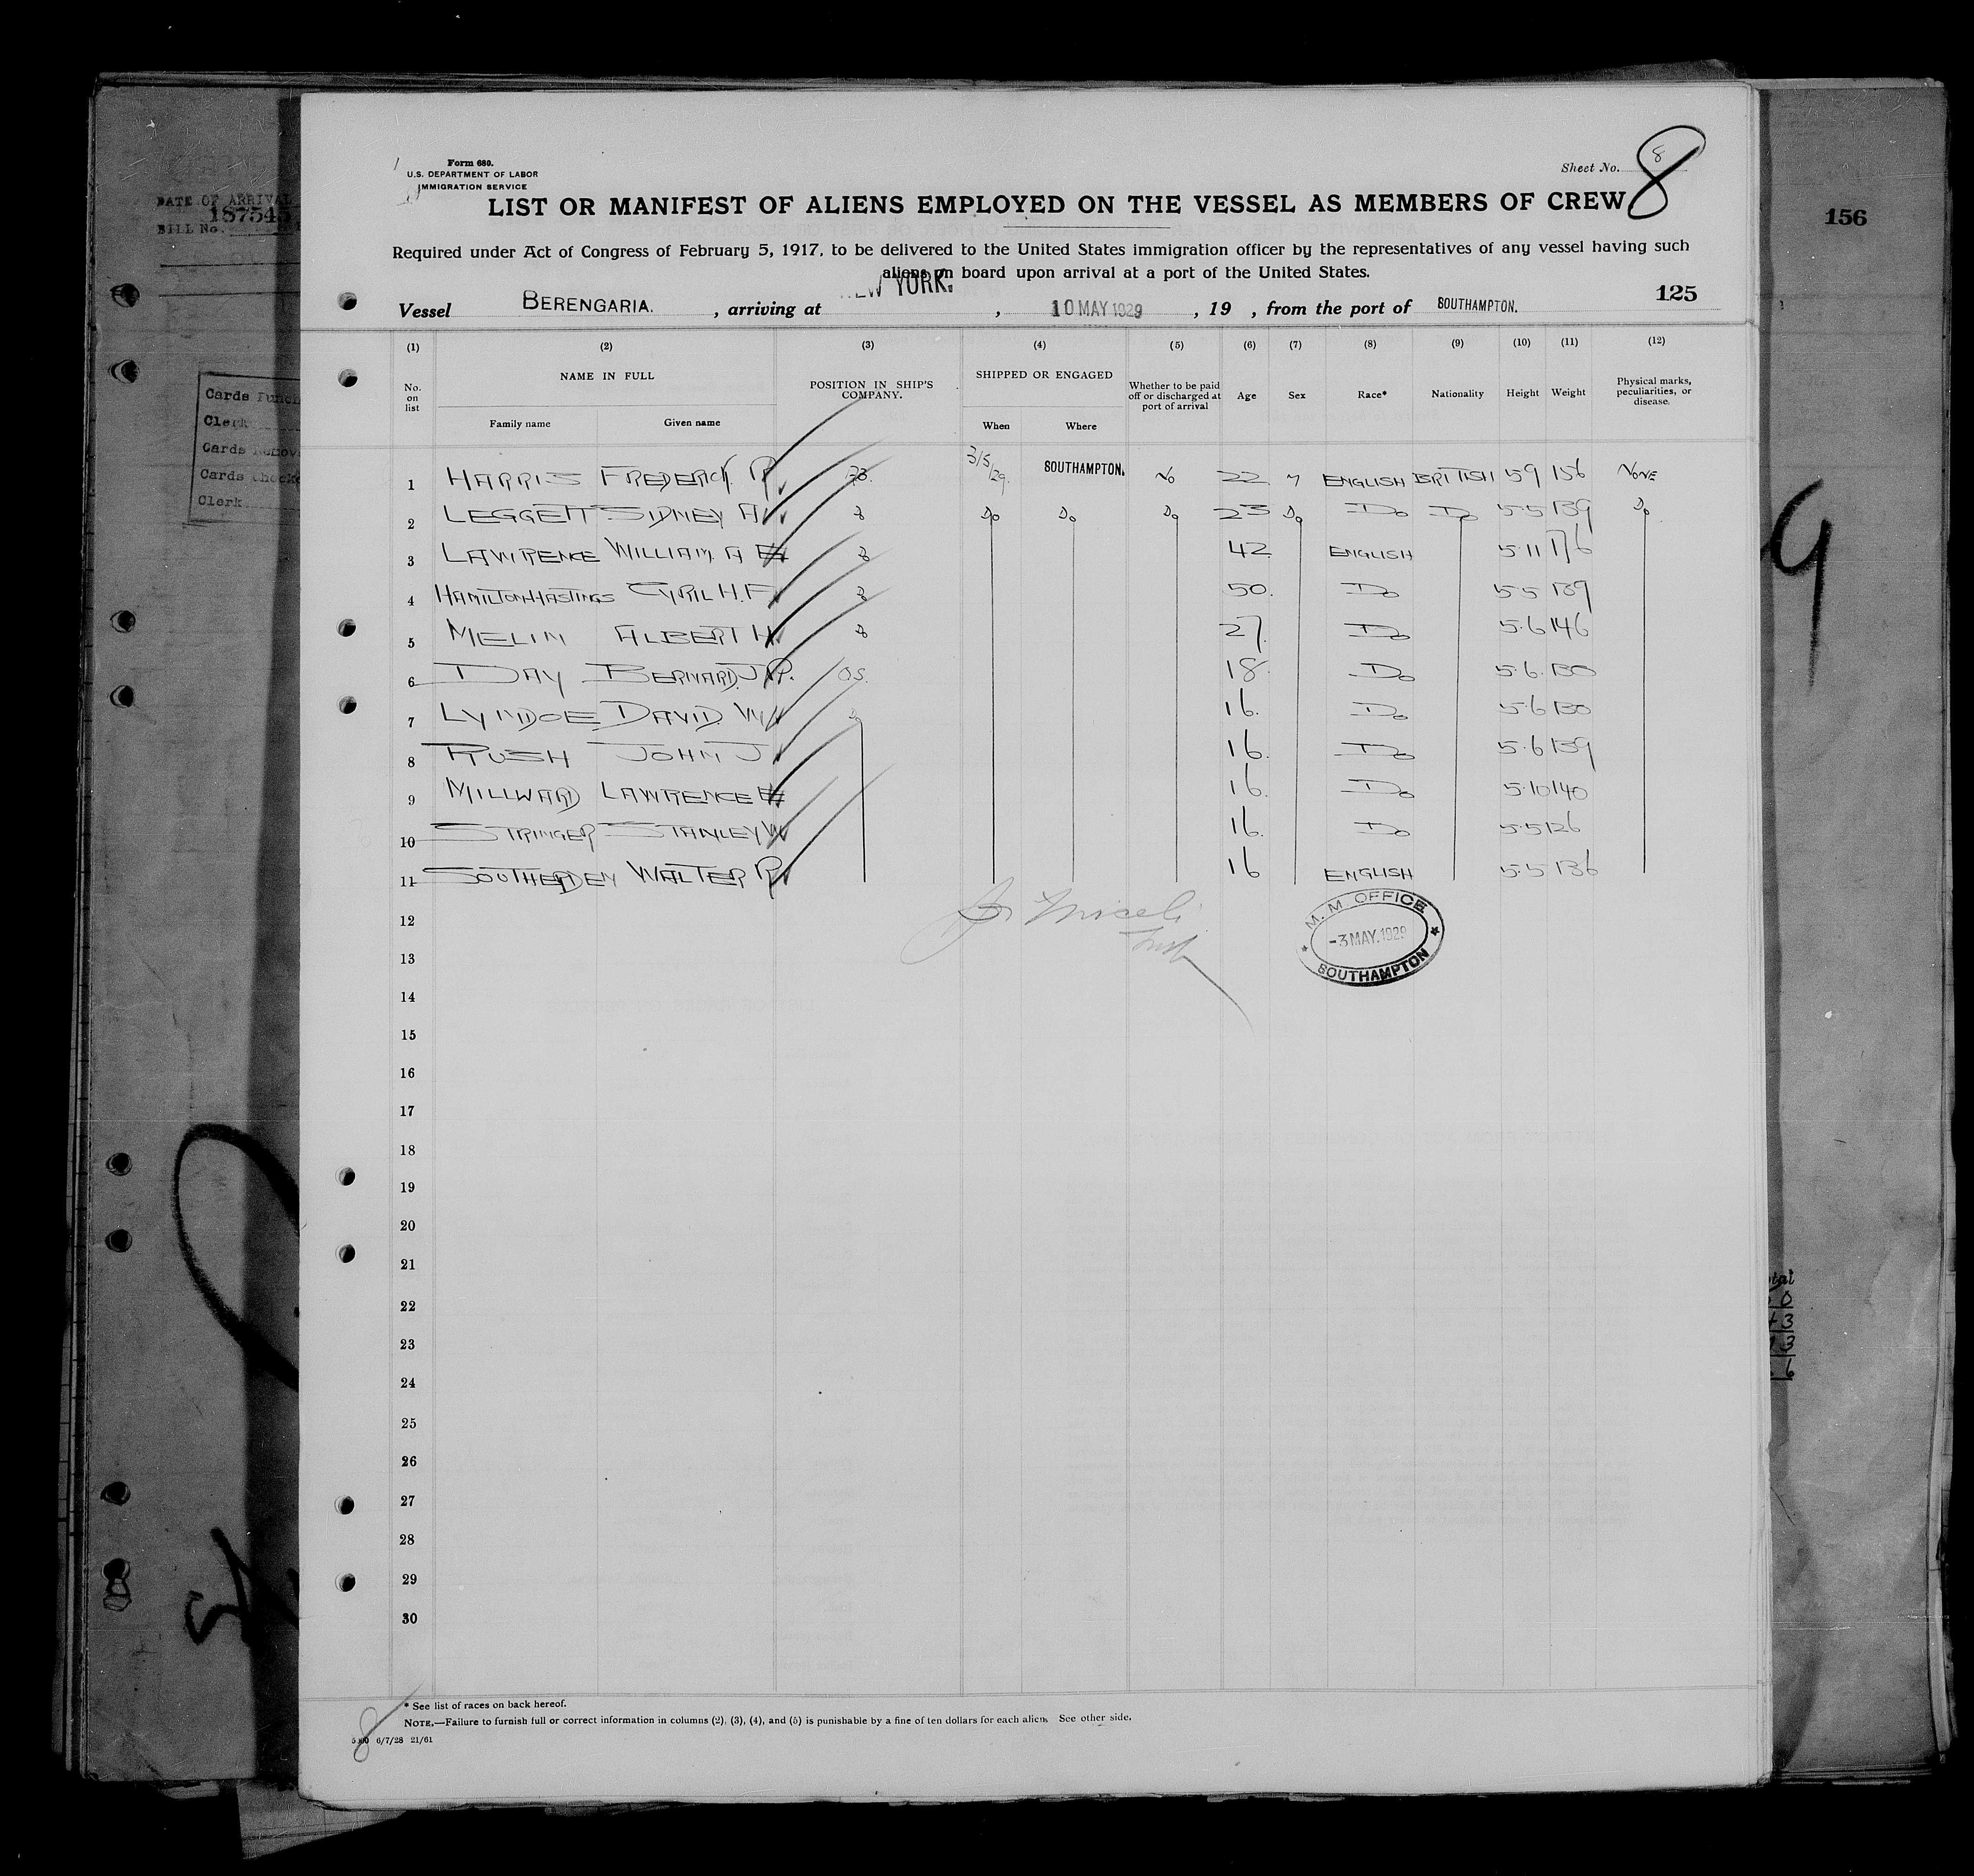 Form 680.
U.S. DEPARTMENT OF LABOR
IMMIGRATION SERVICE
Sheet No. 8
8
LIST OR MANIFEST OF ALIENS EMPLOYED ON THE VESSEL AS MEMBERS OF CREW
Required under Act of Congress of February 5, 1917, to be delivered to the United States immigration officer by the representatives of any vessel having such
aliens on board upon arrival at a port of the United States.
125
Vessel BERENGARIA. , arriving at NEW YORK. , 10 MAY 1929 , 19 , from the port of SOUTHAMPTON.
(1) (2) (3) (4) (5) (6) (7) (8) (9) (10) (11) (12)
No. on list NAME IN FULL Family name Given name POSITION IN SHIP'S COMPANY. SHIPPED OR ENGAGED When Where Whether to be paid off or discharged at port of arrival Age Sex Race* Nationality Height Weight Physical marks, peculiarities, or disease.
1 HARRIS FREDERICK R 3/5/29. SOUTHAMPTON. No 22 M ENGLISH BRITISH 5 9 156 NONE
2 LEGGETT SIDNEY A Do Do Do 23 Do Do Do 5·5 139 Do
3 LAWRENCE WILLIAM. A 42 ENGLISH 5·11 176
4 HAMILTON-HASTINGS CYRIL H.F 50. Do 5·5 139
5 MELIN ALBERT H 27. Do 5·6 146
6 DAY BERNARD. J P. O.S. 18. Do 5·6. 130
7 LYNDOE DAVID. W 16. Do 5·6 130
8 RUSH JOHN J 16. Do 5·6 139
9 MILLWARD LAWRENCE E 16. Do 5·10 140
10 STRINGER STANLEY W 16. Do 5·5 126
11 SOUTHERDEN WALTER R 16 ENGLISH 5·5 136
12
13
14
15
16
17
18
19
20
21
22
23
24
25
26
27
28
29
30
M. M. OFFICE
-3 MAY. 1929
SOUTHAMPTON
* See list of races on back hereof.
NOTE.—Failure to furnish full or correct information in columns (2), (3), (4), and (5) is punishable by a fine of ten dollars for each alien. See other side.
6/7/28 21/61
8
DATE OF ARRIVAL
187545
BILL No.
Cards
Clerk
Cards
Cards
Clerk
156
9